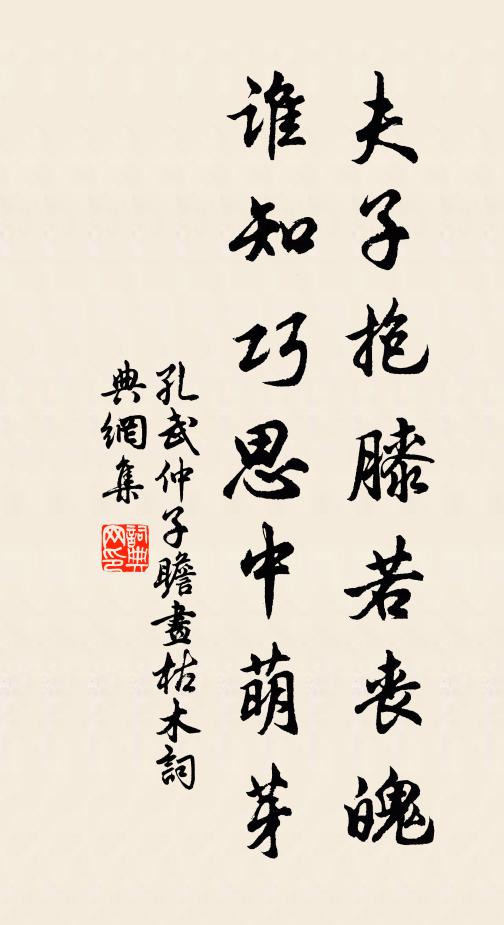 夫子抱膝若丧魄
谁知巧思中萌芽
孔武仲子瞻畫枯木詞
典網集
詞典網印